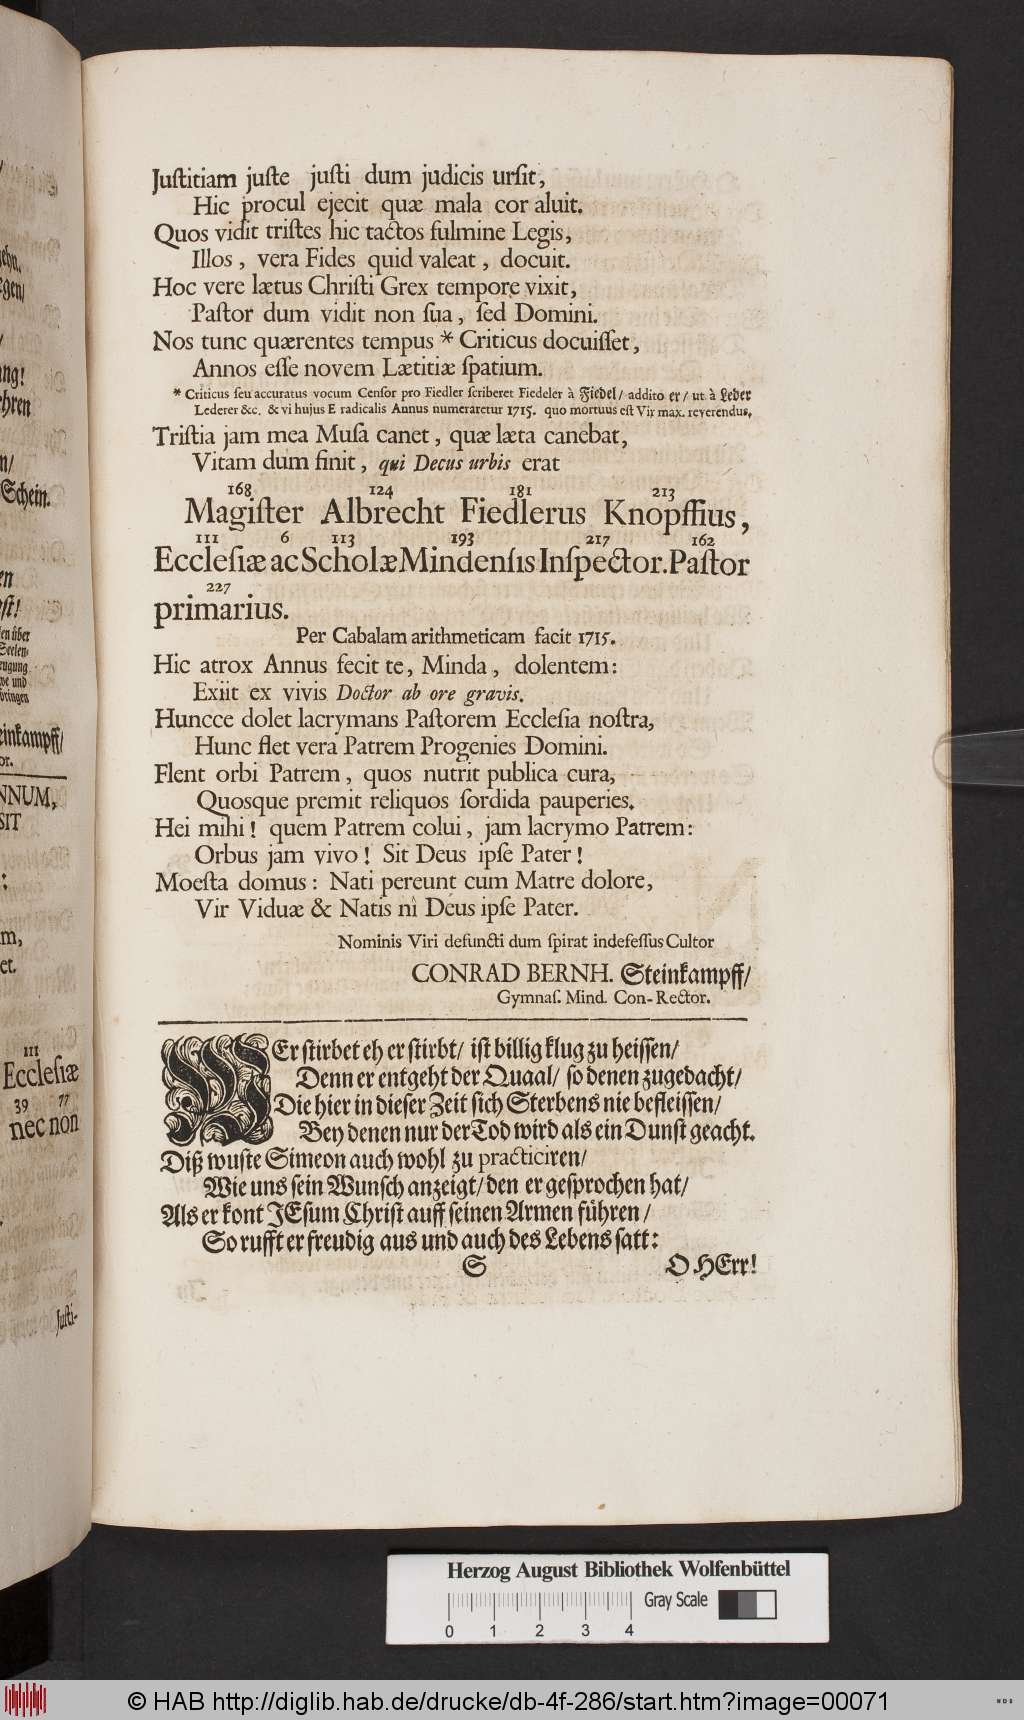 Juſtitiam juſte juſti dum judicis urſit,
Hic procul ejecit quæ mala cor aluit.
Quos vidit triſtes hic tactos fulmine Legis,
Illos, vera Fides quid valeat, docuit.
Hoc vere lætus Chriſti Grex tempore vixit,
Paſtor dum vidit non ſua, ſed Domini.
Nos tunc quærentes tempus * Criticus docuiſſet,
Annos eſſe novem Lætitiæ ſpatium.
* Criticus ſeu accuratus vocum Cenſor pro Fiedler ſcriberet Fiedeler à Fiedel/ addito er/ ut à Leder
Lederer &c. & vi hujus E radicalis Annus numeraretur 1715. quo mortuus eſt Vir max. reverendus.
Triſtia jam mea Muſa canet, quæ læta canebat,
Vitam dum finit, qui Decus urbis erat
168 124 181 213
Magiſter Albrecht Fiedlerus Knopffius,
111 6 113 193 217 162
Eccleſiæ ac Scholæ Mindenſis Inſpector. Paſtor
227
primarius.
Per Cabalam arithmeticam facit 1715.
Hic atrox Annus fecit te, Minda, dolentem:
Exiit ex vivis Doctor ab ore gravis.
Huncce dolet lacrymans Paſtorem Eccleſia noſtra,
Hunc flet vera Patrem Progenies Domini.
Flent orbi Patrem, quos nutrit publica cura,
Quosque premit reliquos ſordida pauperies.
Hei mihi! quem Patrem colui, jam lacrymo Patrem:
Orbus jam vivo! Sit Deus ipſe Pater!
Moeſta domus: Nati pereunt cum Matre dolore,
Vir Viduæ & Natis nì Deus ipſe Pater.
Nominis Viri defuncti dum ſpirat indefeſſus Cultor
CONRAD BERNH. Steinkampff/
Gymnaſ. Mind. Con-Rector.
WEr ſtirbet eh er ſtirbt/ iſt billig klug zu heiſſen/
Denn er entgeht der Quaal/ ſo denen zugedacht/
Die hier in dieſer Zeit ſich Sterbens nie befleiſſen/
Bey denen nur der Tod wird als ein Dunſt geacht.
Diß wuſte Simeon auch wohl zu practiciren/
Wie uns ſein Wunſch anzeigt/ den er geſprochen hat/
Als er kont JEſum Chriſt auff ſeinen Armen führen/
So rufft er freudig aus und auch des Lebens ſatt:
S O HErr!
ang!
Schein.
NNUM,
SIT
111
Eccleſiæ
39 77
nec non
Juſti-
Herzog August Bibliothek Wolfenbüttel
Gray Scale
0 1 2 3 4
© HAB http://diglib.hab.de/drucke/db-4f-286/start.htm?image=00071